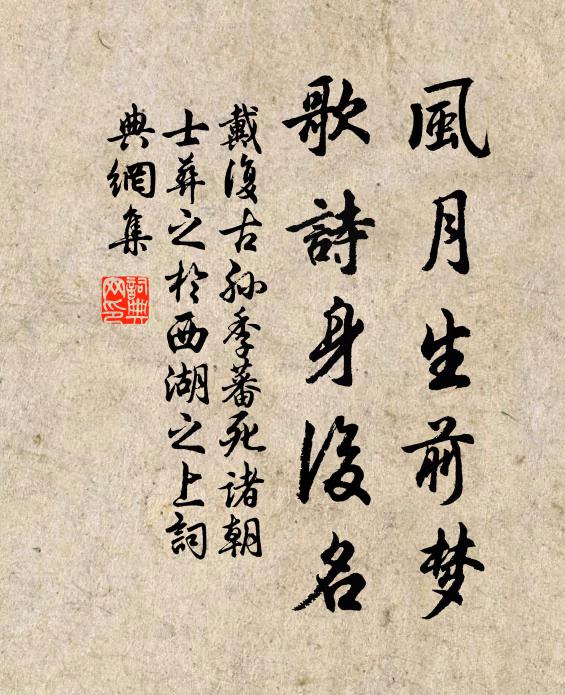 風月生前梦
歌詩身後名
戴復古孙季蕃死諸朝
士葬之於西湖之上詞
典網集
詞典
网印